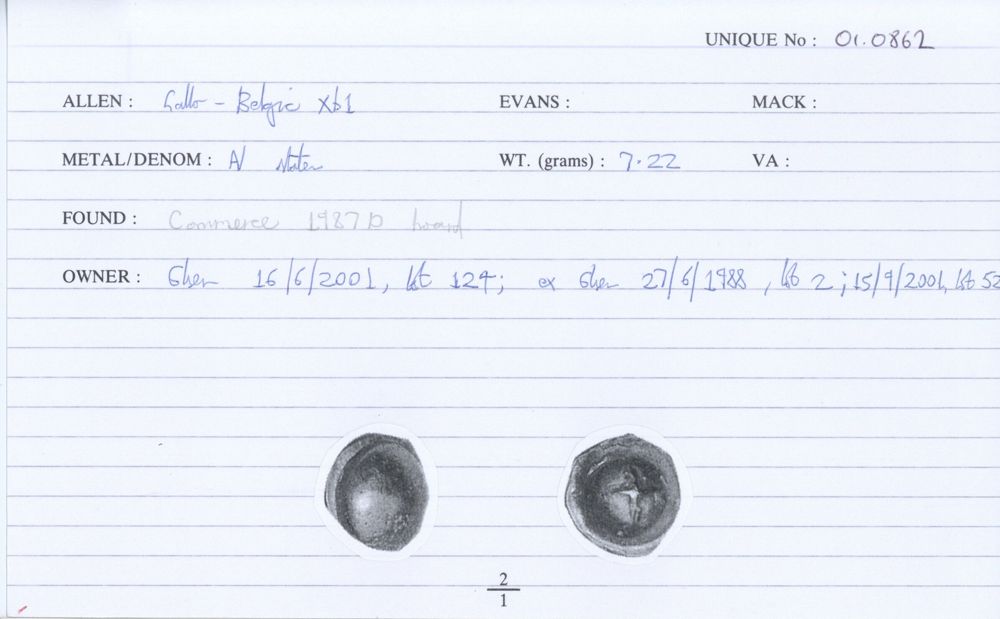 UNIQUE No : 01.0862
ALLEN : Gallo - Belgic Xb1 EVANS : MACK :
METAL/DENOM : AV stater WT. (grams) : 7.22 VA :
FOUND : Commerce 1987 hoard
OWNER : 16/6/2001, lot 124; ex 27/6/1988, lot 2; 15/9/2001, lot 52
2
1